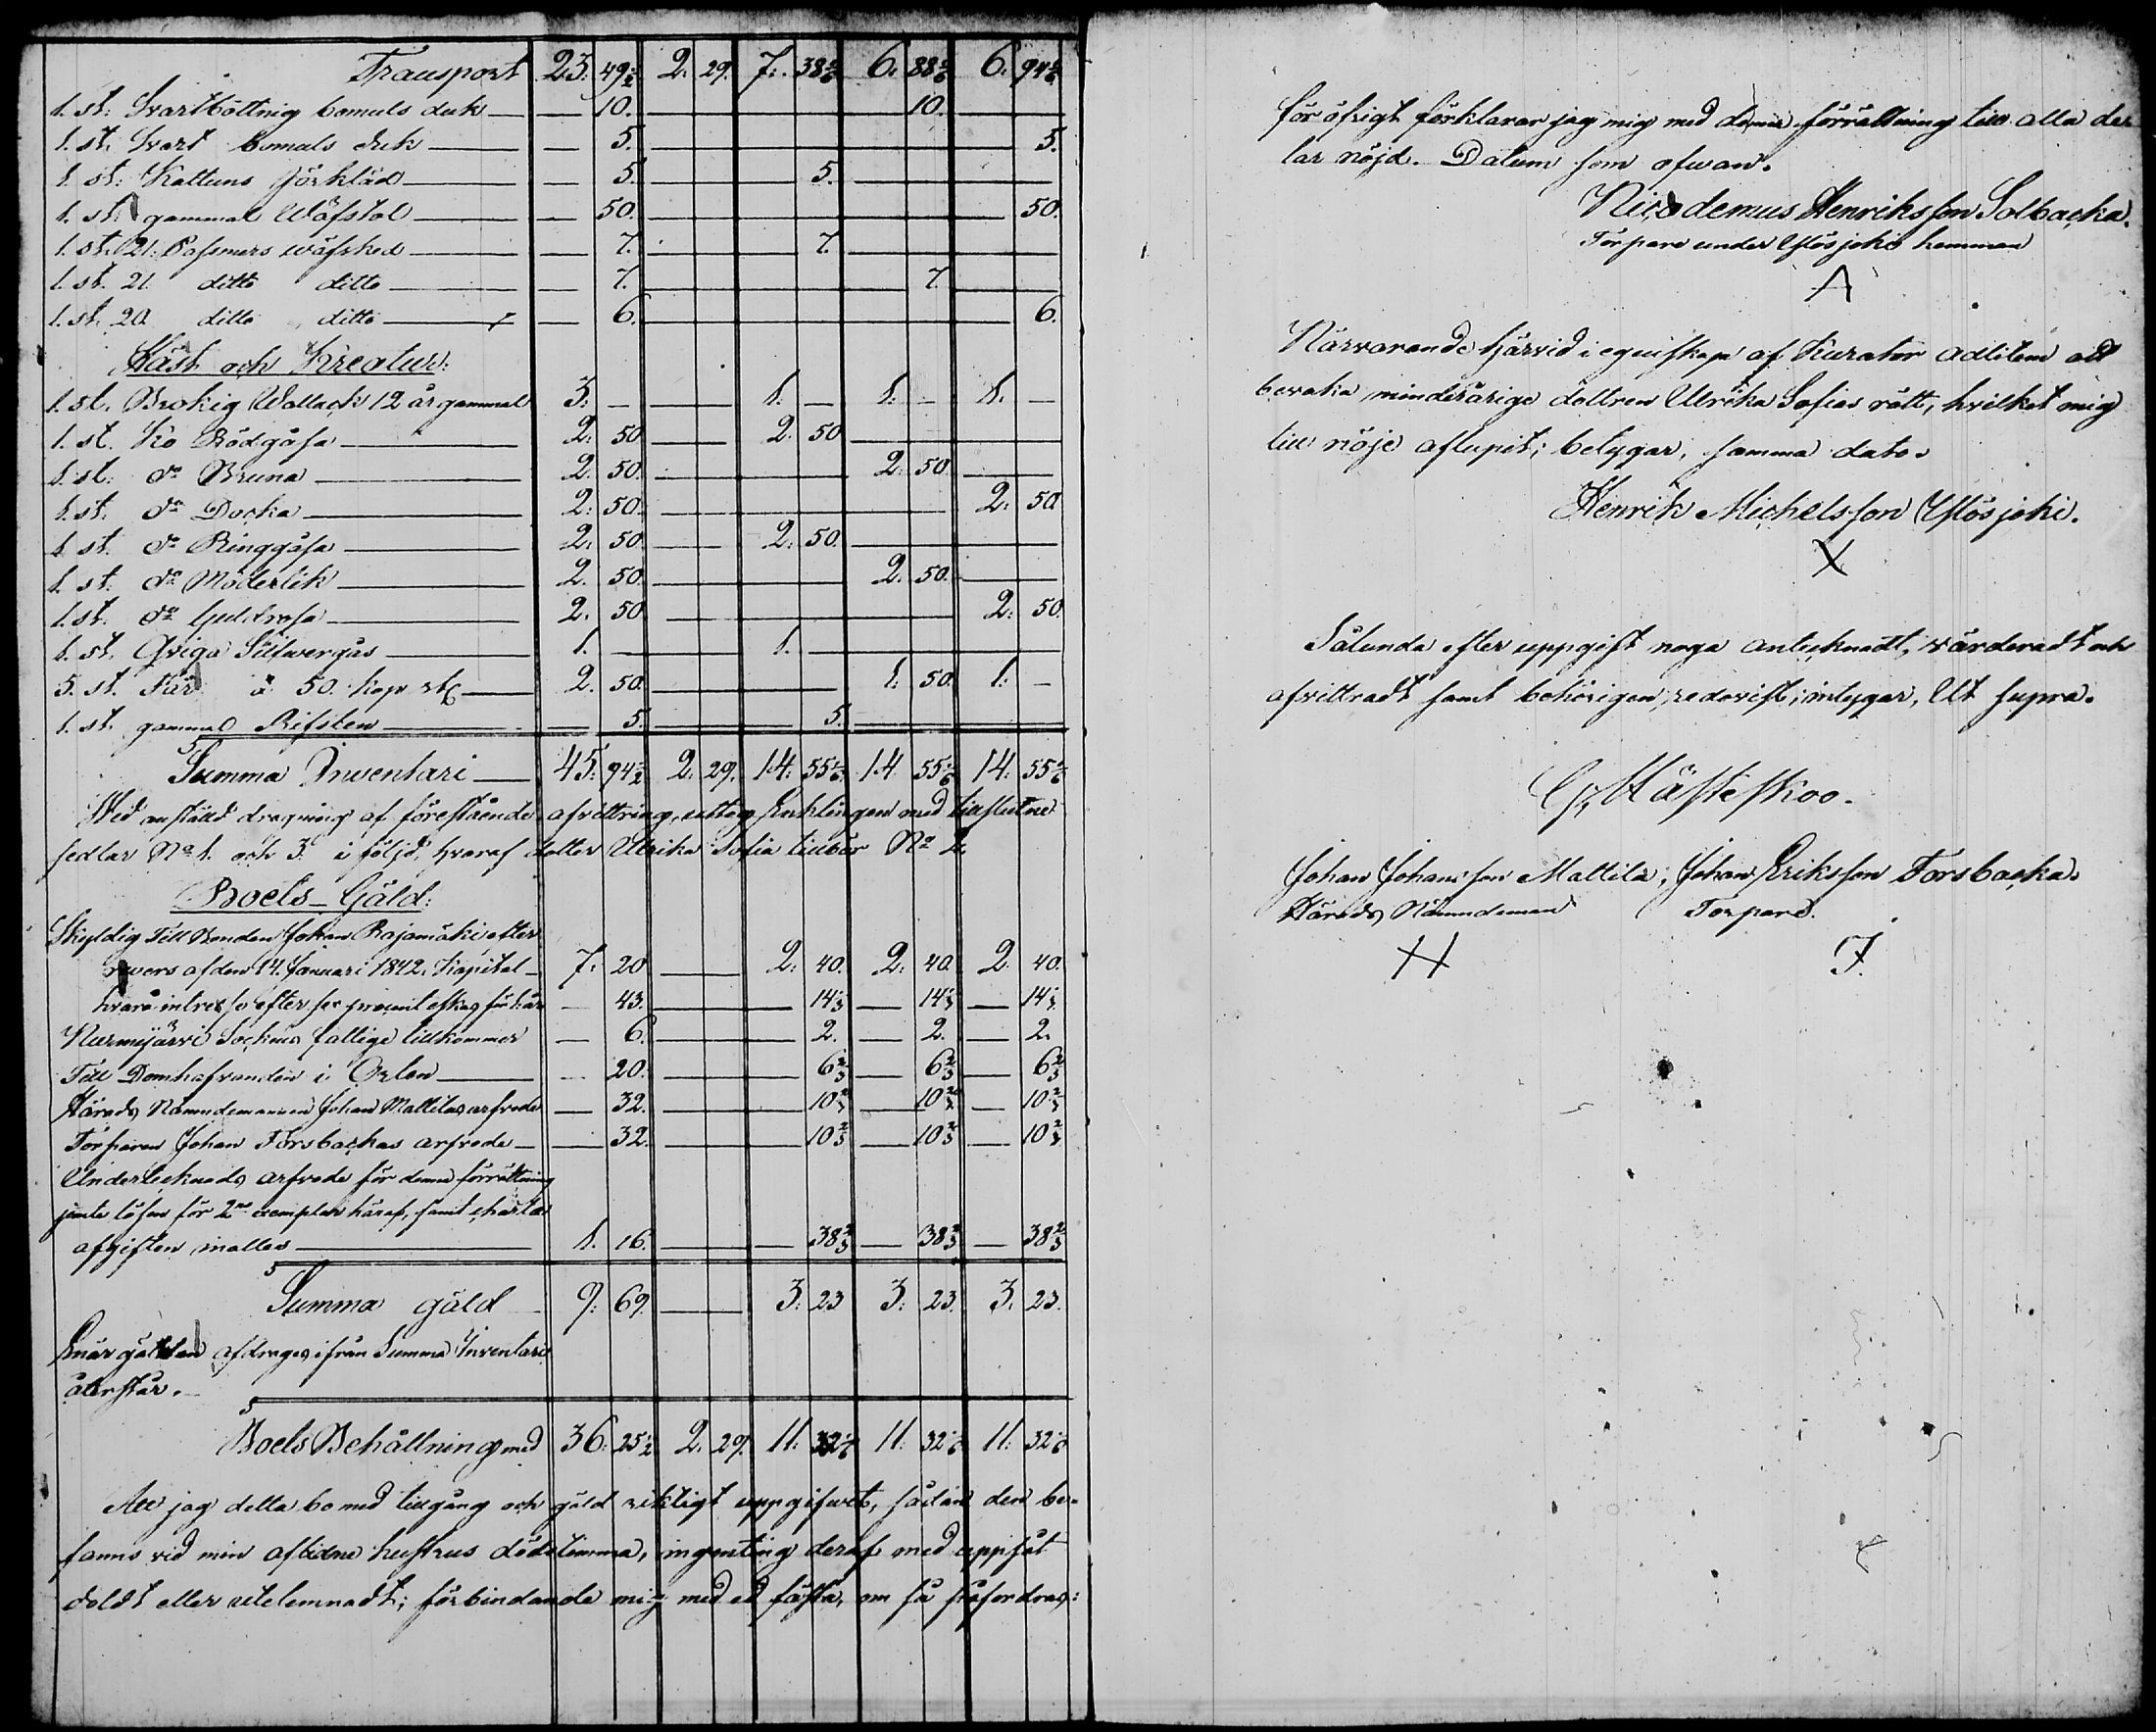 Transport 23. 49½ 2. 29. 7. 38 6. 88 6. 94
1. st. Svartböttnig bomuls duk — 10. — 10. —
1. st. Svart bomuls duk — 5. — 5.
1. st. Kattuns förkläd — 5. — 5. —
1. st. gammal Wäfstol — 50. — 50.
1. st. 21. Passmers wäfsked — 7. — 7. —
1. st. 21 ditto ditto — 7. — 7. —
1. st. 20 ditto ditto — 6. — 6.
Häst och Kreatur:
1. st. Brokig Wallack 12 år gammal 3. — 1. — 1. — 1. —
1. st. Ko Rödgåsa — 2. 50 — 2. 50 —
1. st. do Bruna — 2. 50. — 2. 50. —
1. st. do Docka — 2. 50. — 2. 50
1. st. do Ringgåsa — 2. 50. — 2. 50. —
1. st. do Möderlik — 2. 50. — 2. 50. —
1. st. do Guldrosa — 2. 50. — 2. 50.
1. st. Qviga Silfwergås — 1. — 1. —
5. st. Får à 50. kop st — 2. 50. — 1. 50. 1. —
1. st. gammal Rifsten — 5. — 5. —
Summa Inventari — 45. 94½ 2. 29. 14. 55 14. 55 14. 55
Wid anställd dragning af förestående afvittring, uttog Enklingen med tillslutne
sedlar No 1. och 3. i följd, hvaraf dotter Ulrika Sofia tillhör No 2.
Boels Gäld:
Skyldig Till Bonden Johan Rajamäki efter
revers af den 14. Januari 1842. Kapital — 7. 20 — 2. 40. 2. 40. 2. 40.
hvarå intresse efter sex procent för 1. år — 43. — 14⅓ — 14⅓ — 14⅓
Nurmijärvi Sockens fattige tillkommer — 6. — 2. — 2. — 2.
Till Domhafvanden i Orten — 20. — 6⅔ — 6⅔ — 6⅔
Härads Nämndemannen Johan Mattilas arfvode — 32. — 10⅔ — 10⅔ — 10⅔
Torparen Johan Forsbackas arfvode — 32. — 10⅔ — 10⅔ — 10⅔
Undertecknads arfvode för denna förrättning
jemte lösen för 2ne exemplar häraf, samt charta
afgiften inalles — 1. 16. — 38⅔ — 38⅔ — 38⅔
Summa gäld 9. 69. — 3. 23 3. 23. 3. 23.
Enär gälden afdrages ifrån Summa Inventari
återstår.
Boels Behållning med 36. 25½ 2. 29. 11. 32 11. 32 11. 32
Att jag detta bo med tillgång och gäld riktigt uppgifwit, sådan den be-
fanns vid min aflidne hustrus dödstimma, ingenting deraf med uppsåt
doldt eller utelemnadt; förbindande mig med ed fästa, om så påfordras:
för öfrigt förklarar jag mig med denna förrättning till alla de-
lar nöjd. Datum som ofwan.
Nicodemus Henriksson Solbacka.
Torpare under Ylösjoki hemman
A
Närvarande härvid i egenskap af Kurator adlitem att
bevaka minderårige dottren Ulrika Sofias rätt, hvilket mig
till nöje aflupit; betygar, samma dato.
Henrik Michelsson Ylösjoki.
X
Sålunda efter uppgift noga antecknadt, värderadt och
afvittradt samt behörigen redovist; intygar, Ut supra.
Johan Johansson Mattila, Johan Eriksson Forsbacka.
Härads Nämndeman Torpare.
H F.